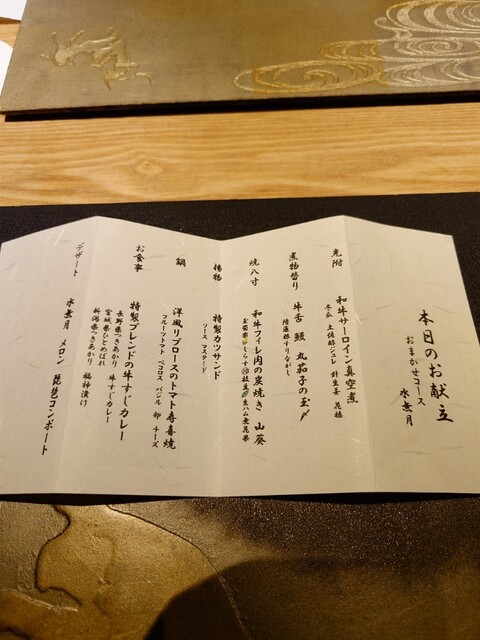 本日のお献立
おまかせコース 水無月
先附
和牛サーロイン真空煮
冬瓜 土佐酢ジュレ 針生姜 花穂
煮物替り
牛舌 鰻 丸茄子の玉〆
陸蓮根すりながし
焼八寸
和牛フィレ肉の炭焼き 山葵
玉蜀黍 しらす 枝豆 生ハム無花果
揚物
特製カツサンド
ソース マスタード
鍋
洋風リブロースのトマト寿喜焼
フルーツトマト ペコロス バジル 卵 チーズ
お食事
特製ブレンドの牛すじカレー
長野県つきあかり 牛すじカレー
宮城県ひとめぼれ
新潟県つきあかり 福神漬け
デザート
水無月 メロン 琵琶コンポート